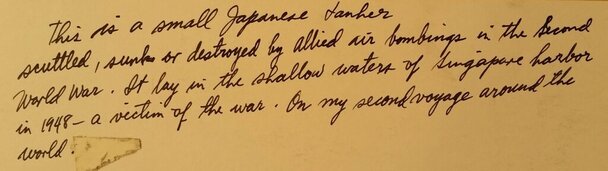 this is a small Japanese tanker
scuttled, sunk or destroyed by Allied air bombings in the Second
World War. It lay in the shallow waters of Singapore harbor
in 1948 - a victim of the war. On my second voyage around the
world.